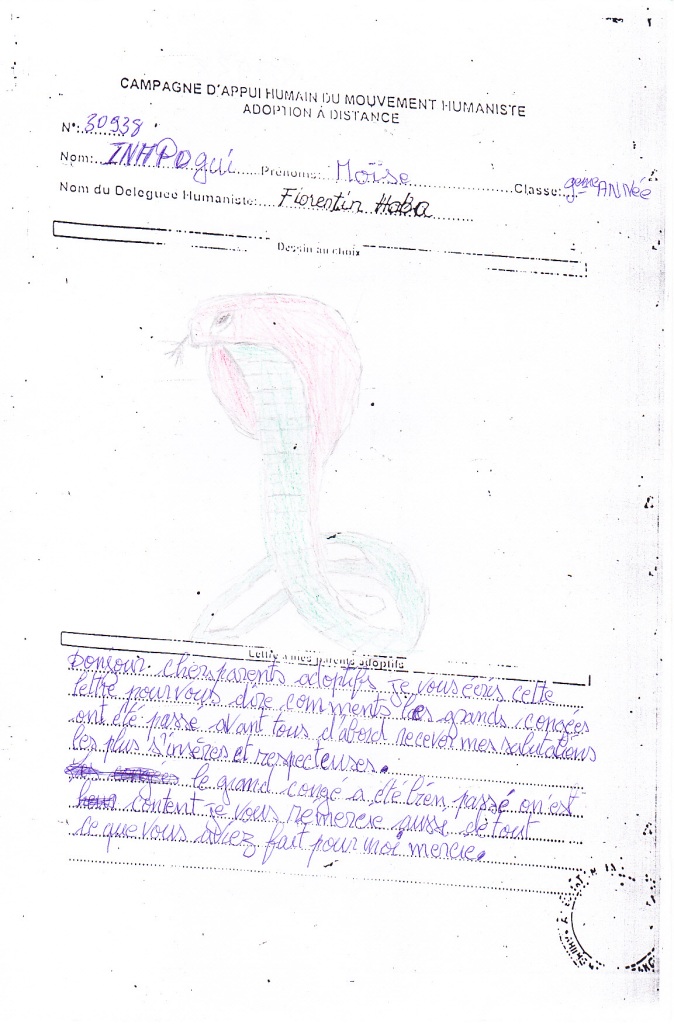 CAMPAGNE D'APPUI HUMAIN DU MOUVEMENT HUMANISTE
ADOPTION À DISTANCE
N°: 30938
Nom: Prénoms: Moïse Classe: 9ème ANNée
Nom du Deleguee Humaniste: Florentin Haba
Dessin au choix
Lettre à mes parents adoptifs
Bonjour. chers parents adoptifs je vous écris cette
lettre pour vous dire comments les grands congées
ont été passe avant tous d'abord recever mes salutations
les plus s'insères et respecteuses.
le grand congé a été bien passé on est
content je vous remercie aussi de tout
ce que vous aviez fait pour moi mercie.